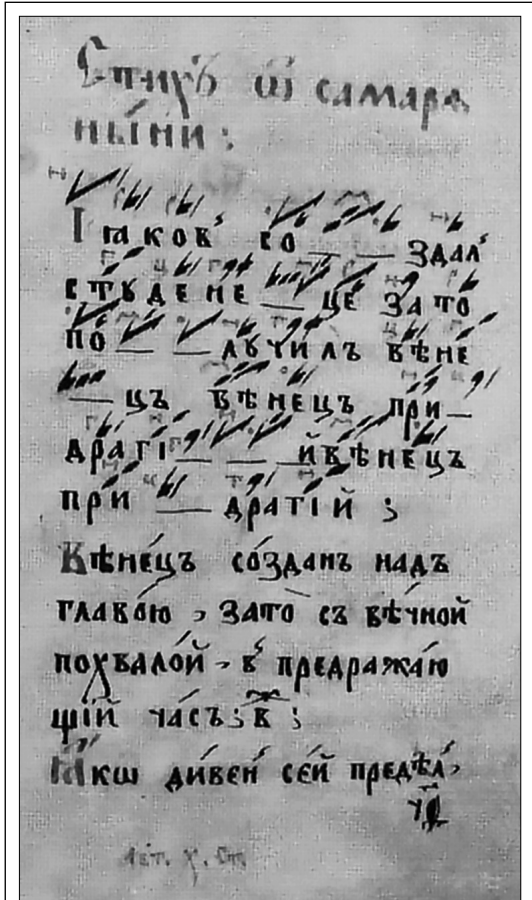 Стихъ ѿ самарѧ
ны́ни :
Іꙗковъ со — — здалъ
стꙋдене — це зато
по — — лꙋчилъ вѣне
— цъ вѣнецъ при —
драгі — — — йвѣнецъ
при — драгій ;
Вѣне́цъ со́зданъ надъ
главо́ю , зато съ вѣ́чной
похвало́й , в предража́ю
щій ча́съ ; в҃ ;
Ꙗ҆́кѡ ди́вен се́й предѣ́л ,